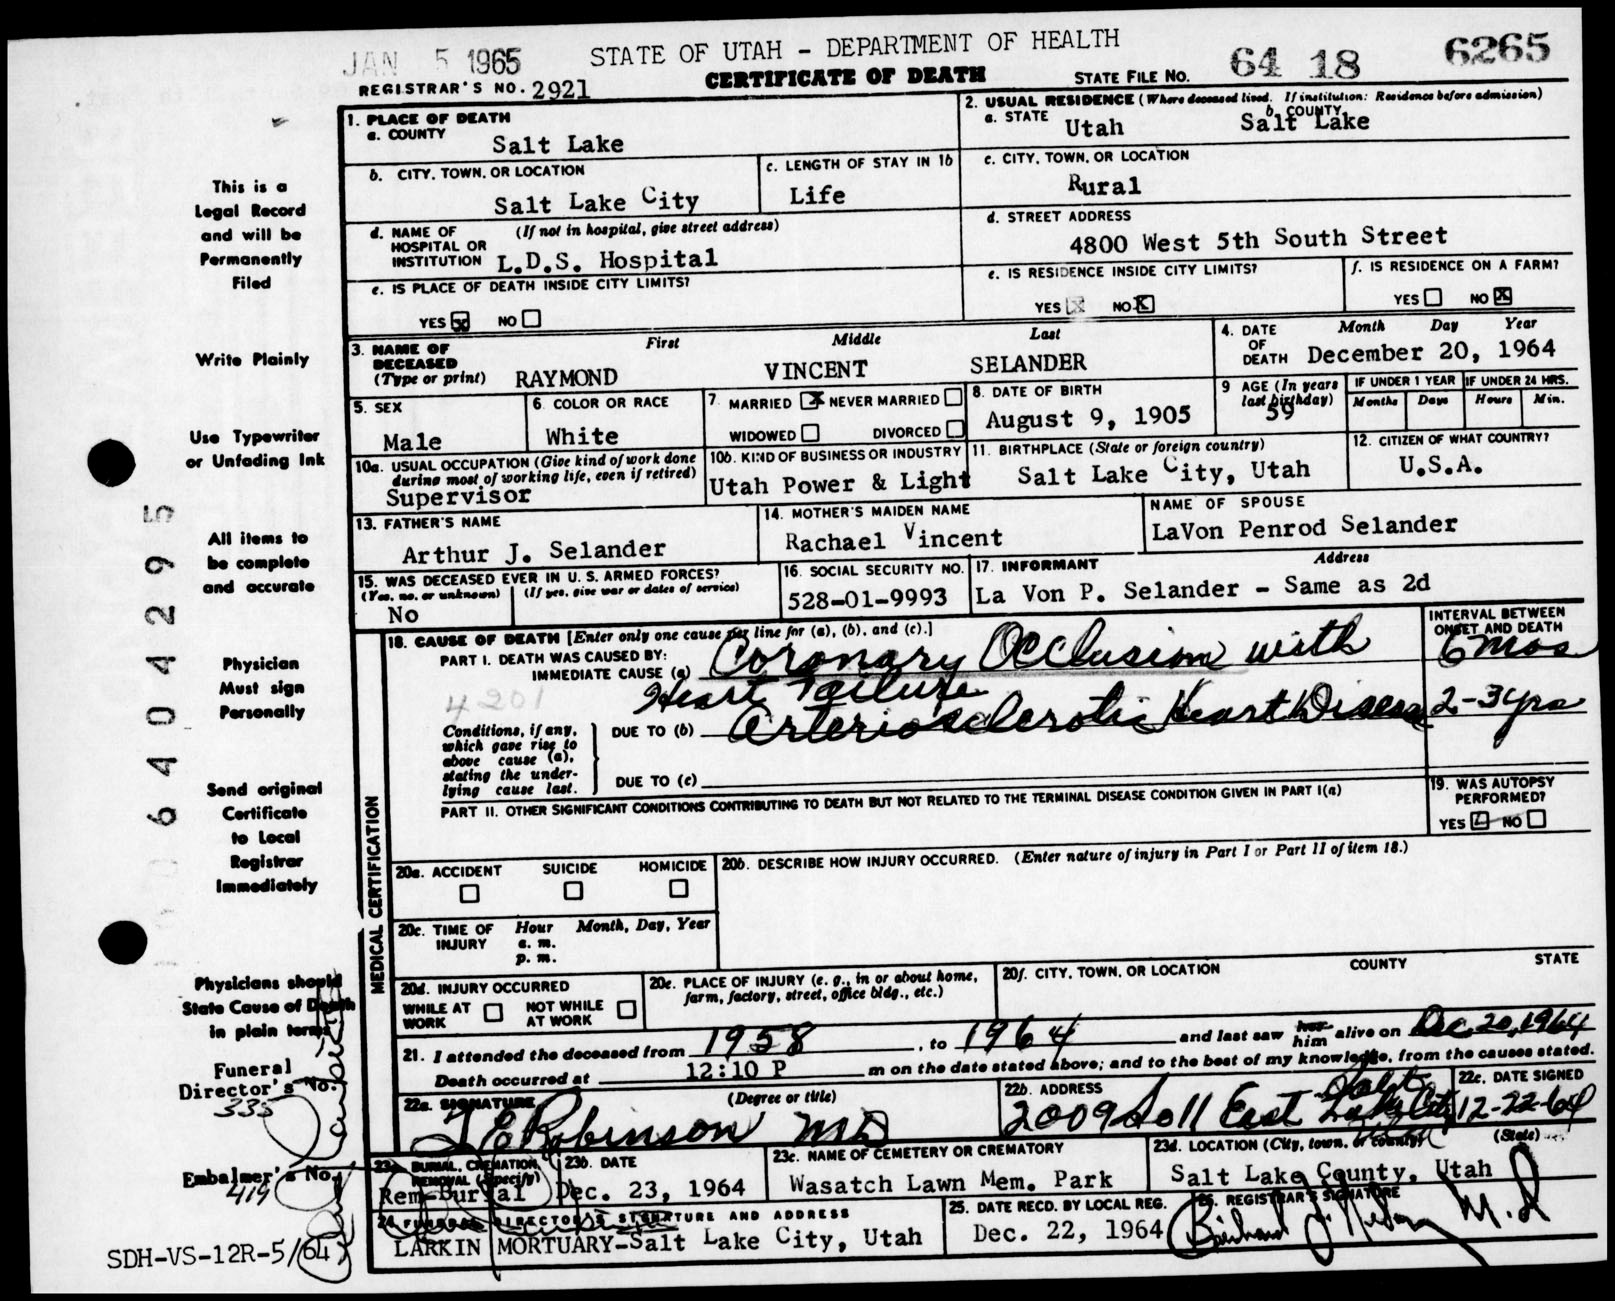 JAN 5 1965 STATE OF UTAH - DEPARTMENT OF HEALTH 64 18 6265
REGISTRAR'S NO. 2921 CERTIFICATE OF DEATH STATE FILE NO.
1. PLACE OF DEATH
a. COUNTY
Salt Lake
2. USUAL RESIDENCE (Where deceased lived. If institution: Residence before admission)
a. STATE Utah b. COUNTY Salt Lake
b. CITY, TOWN, OR LOCATION
Salt Lake City
c. LENGTH OF STAY IN 1b
Life
c. CITY, TOWN, OR LOCATION
Rural
d. NAME OF (If not in hospital, give street address)
HOSPITAL OR
INSTITUTION L.D.S. Hospital
d. STREET ADDRESS
4800 West 5th South Street
e. IS PLACE OF DEATH INSIDE CITY LIMITS?
YES X NO
e. IS RESIDENCE INSIDE CITY LIMITS?
YES X NO X
f. IS RESIDENCE ON A FARM?
YES NO X
3. NAME OF First Middle Last
DECEASED
(Type or print) RAYMOND VINCENT SELANDER
4. DATE Month Day Year
OF
DEATH December 20, 1964
5. SEX
Male
6. COLOR OR RACE
White
7. MARRIED X NEVER MARRIED
WIDOWED DIVORCED
8. DATE OF BIRTH
August 9, 1905
9 AGE (In years
last birthday)
59
IF UNDER 1 YEAR IF UNDER 24 HRS.
Months Days Hours Min.
10a. USUAL OCCUPATION (Give kind of work done
during most of working life, even if retired)
Supervisor
10b. KIND OF BUSINESS OR INDUSTRY
Utah Power & Light
11. BIRTHPLACE (State or foreign country)
Salt Lake City, Utah
12. CITIZEN OF WHAT COUNTRY?
U.S.A.
13. FATHER'S NAME
Arthur J. Selander
14. MOTHER'S MAIDEN NAME
Rachael Vincent
NAME OF SPOUSE
LaVon Penrod Selander
15. WAS DECEASED EVER IN U. S. ARMED FORCES?
(Yes, no, or unknown) (If yes, give war or dates of service)
No
16. SOCIAL SECURITY NO.
528-01-9993
17. INFORMANT Address
La Von P. Selander - Same as 2d
18. CAUSE OF DEATH [Enter only one cause per line for (a), (b), and (c).]
INTERVAL BETWEEN
ONSET AND DEATH
PART I. DEATH WAS CAUSED BY:
IMMEDIATE CAUSE (a) Coronary Occlusion with 6 mos
Heart Failure
4201
Conditions, if any,
which gave rise to
above cause (a),
stating the under-
lying cause last.
DUE TO (b) Arteriosclerotic Heart Disease 2-3 yrs
DUE TO (c)
PART II. OTHER SIGNIFICANT CONDITIONS CONTRIBUTING TO DEATH BUT NOT RELATED TO THE TERMINAL DISEASE CONDITION GIVEN IN PART I(a)
19. WAS AUTOPSY
PERFORMED?
YES NO
MEDICAL CERTIFICATION
20a. ACCIDENT SUICIDE HOMICIDE
20b. DESCRIBE HOW INJURY OCCURRED. (Enter nature of injury in Part I or Part II of item 18.)
20c. TIME OF Hour Month, Day, Year
INJURY a. m.
p. m.
20d. INJURY OCCURRED
WHILE AT NOT WHILE
WORK AT WORK
20e. PLACE OF INJURY (e. g., in or about home,
farm, factory, street, office bldg., etc.)
20f. CITY, TOWN, OR LOCATION COUNTY STATE
21. I attended the deceased from 1958, to 1964 and last saw her him alive on Dec. 20, 1964
Death occurred at 12:10 P m on the date stated above; and to the best of my knowledge, from the causes stated.
22a. SIGNATURE (Degree or title)
L E Robinson MD
22b. ADDRESS
2009 So 11 East Salt Lake City Utah
22c. DATE SIGNED
12-22-64
23a. BURIAL, CREMATION,
REMOVAL (Specify)
Rem-Burial
23b. DATE
Dec. 23, 1964
23c. NAME OF CEMETERY OR CREMATORY
Wasatch Lawn Mem. Park
23d. LOCATION (City, town, or county) (State)
Salt Lake County, Utah
24. FUNERAL DIRECTOR'S SIGNATURE AND ADDRESS
LARKIN MORTUARY-Salt Lake City, Utah
25. DATE RECD. BY LOCAL REG.
Dec. 22, 1964
26. REGISTRAR'S SIGNATURE
M.D.
This is a
Legal Record
and will be
Permanently
Filed
Write Plainly
Use Typewriter
or Unfading Ink
All items to
be complete
and accurate
Physician
Must sign
Personally
Send original
Certificate
to Local
Registrar
Immediately
Physicians should
State Cause of Death
in plain terms
Funeral
Director's No.
335
Embalmer's No.
419
SDH-VS-12R-5/64
6404295